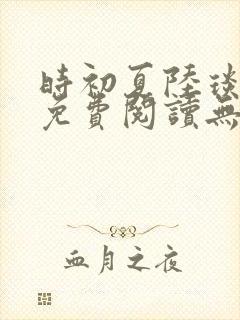 時初夏陸
免費閱讀無
血月之夜